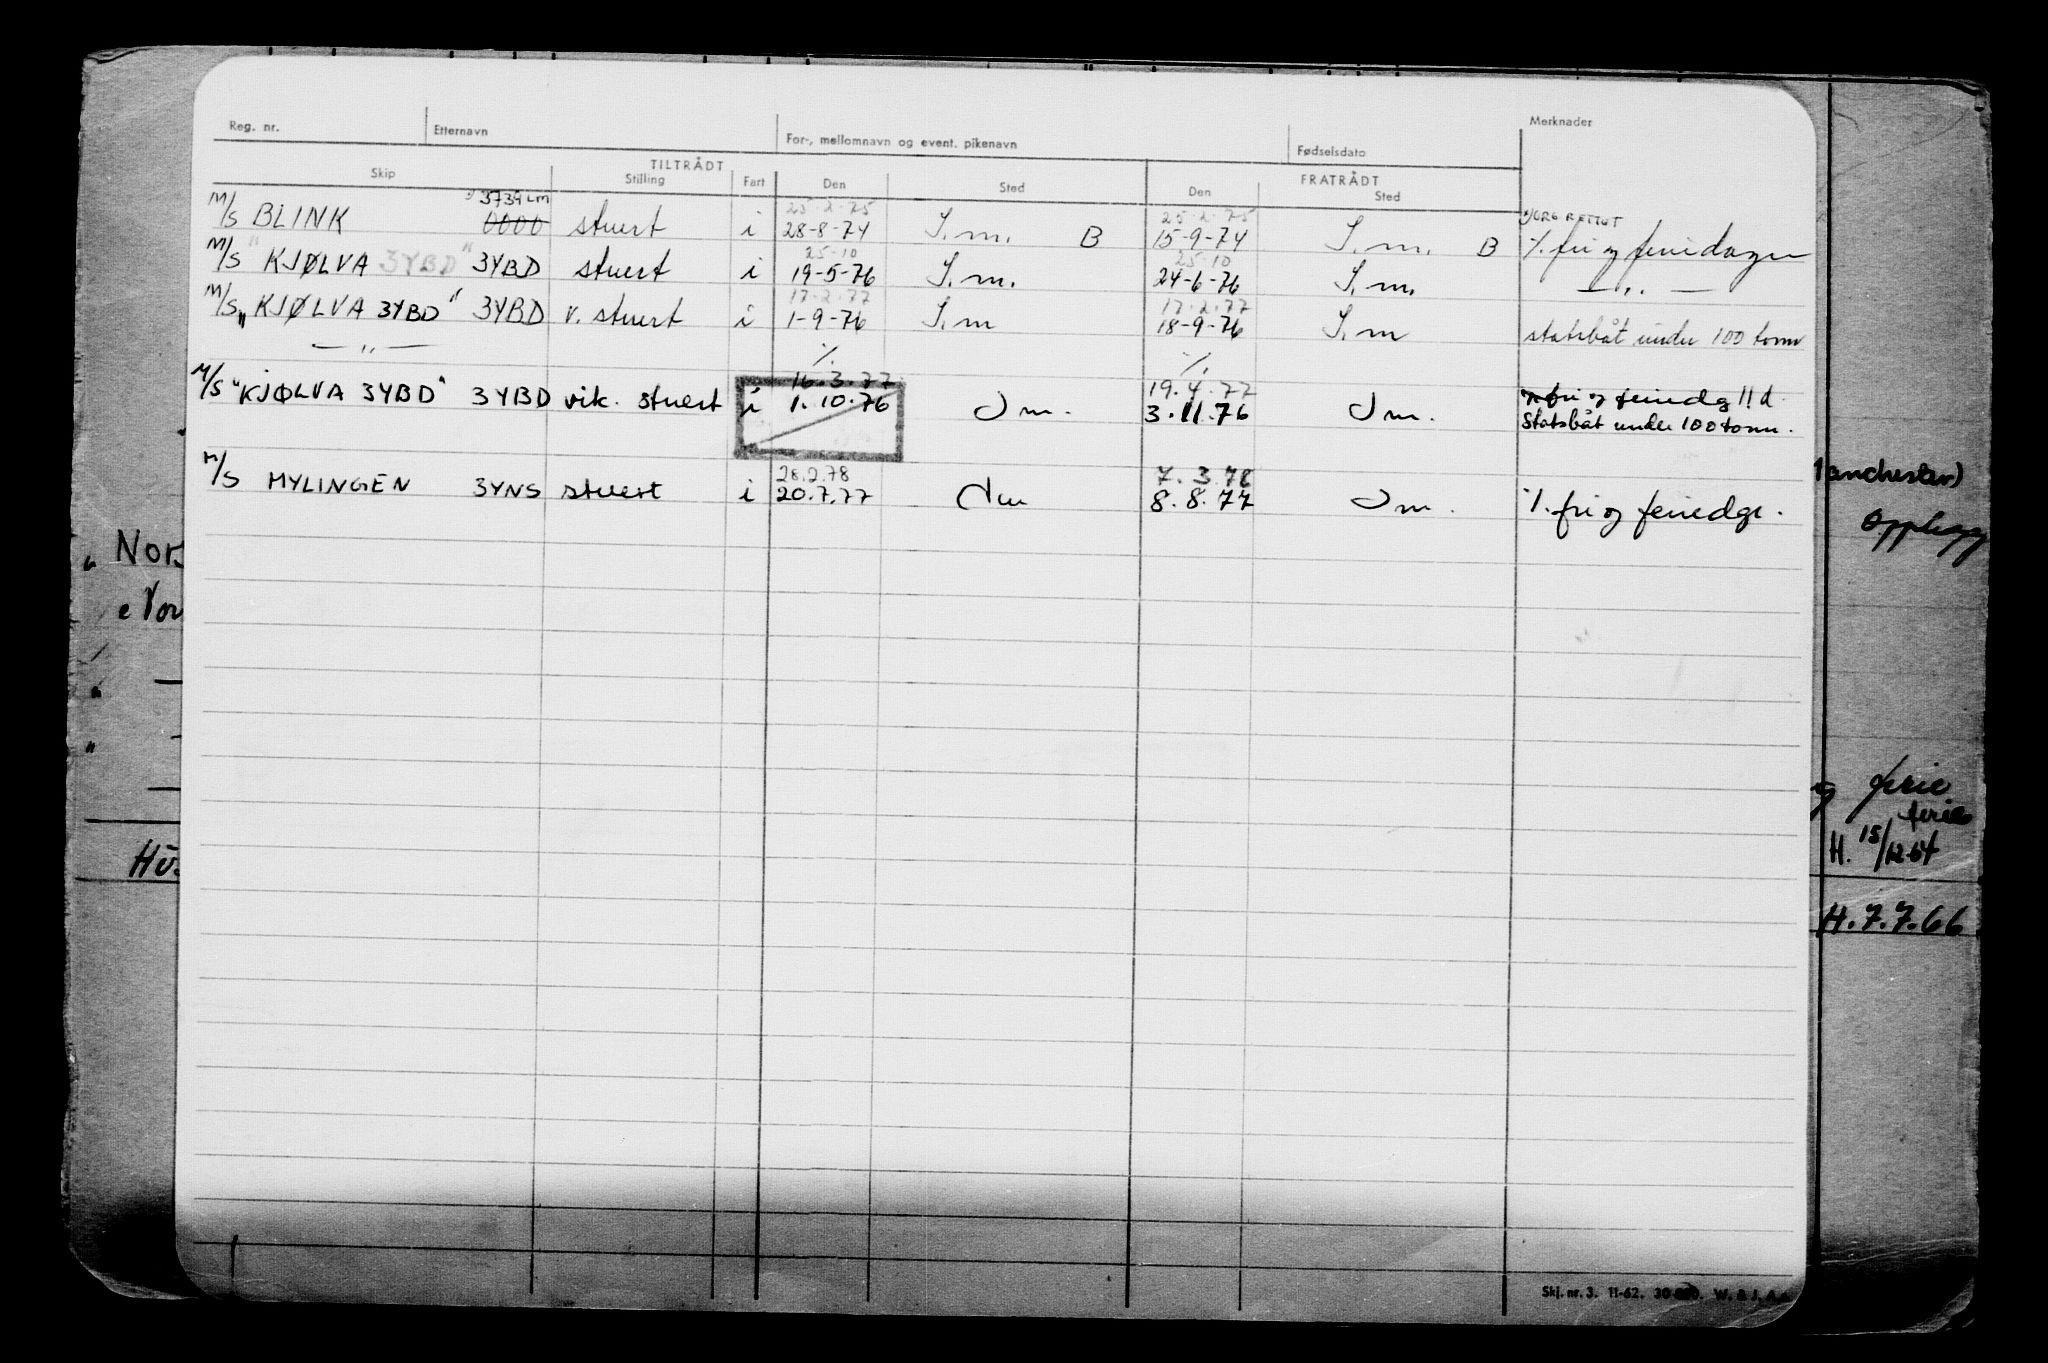 Reg. nr. Etternavn For-, mellomnavn og event. pikenavn Fødselsdato Merknader
TILTRÅDT FRATRÅDT
Skip Stilling Fart Den Sted Den Sted
3739 LM 25-2-75 25-2-75 ORG RETTET
M/S BLINK 0000 stuert i 28-8-74 S.m. B 15-9-74 S.m. B ⁒ fri og feriedager
25-10 25.10
M/S "KJØLVA 3YBD" 3YBD stuert i 19-5-76 S.m. 24-6-76 S.m. — „ —
17-2-77 17.2.77
M/S "KJØLVA 3YBD" 3YBD v. stuert i 1-9-76 S.m 18-9-76 S.m statsbåt under 100 tonn
— „ — ⁒ ⁒
16.3.77 19.4.77 ⁒ fri og feriedg 11 d.
M/S "KJØLVA 3YBD" 3YBD vik. stuert i 1.10.76 Sm. 3.11.76 Sm. Statsbåt under 100 tonn.
28.2.78 7.3.78
M/S MYLINGEN 3YNS stuert i 20.7.77 Sm 8.8.77 Sm. ⁒ fri og feriedgr.
anchester)
Opplegg
" Nors
e Nor
g ferie
ferie
H. 15/12-64
H.7.7.66
Skj. nr. 3. 11-62. W. & J. A.